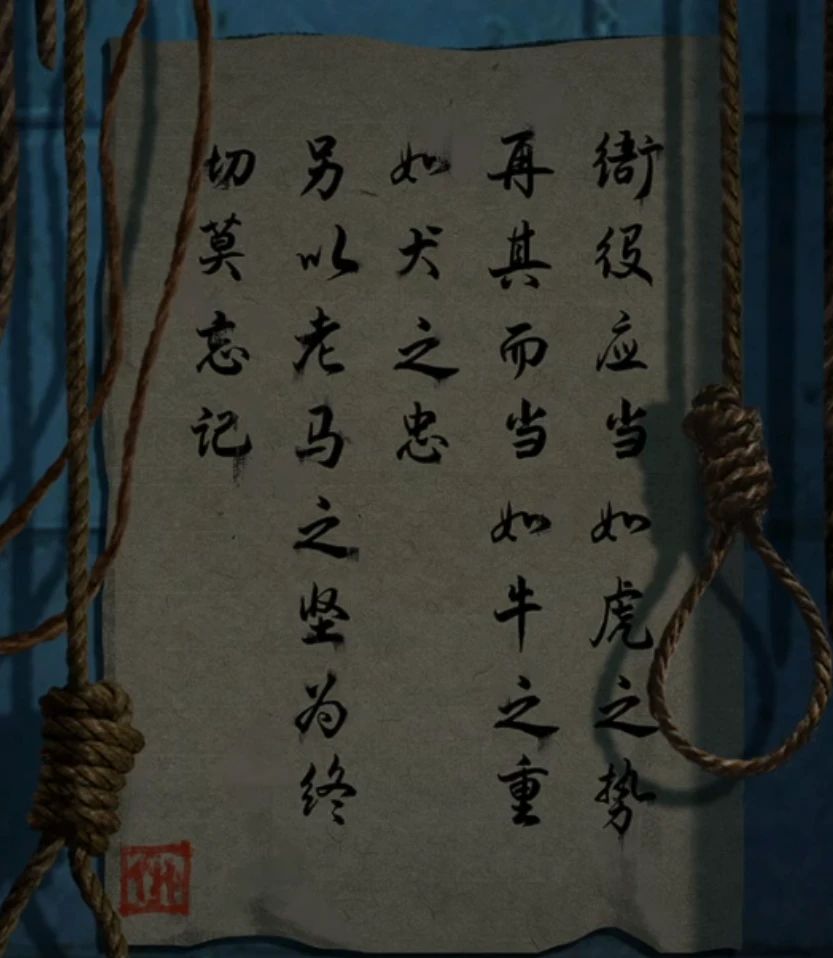 衙役应当如虎之势
再其而当如牛之重
如犬之忠
另以老马之坚为终
切莫忘记